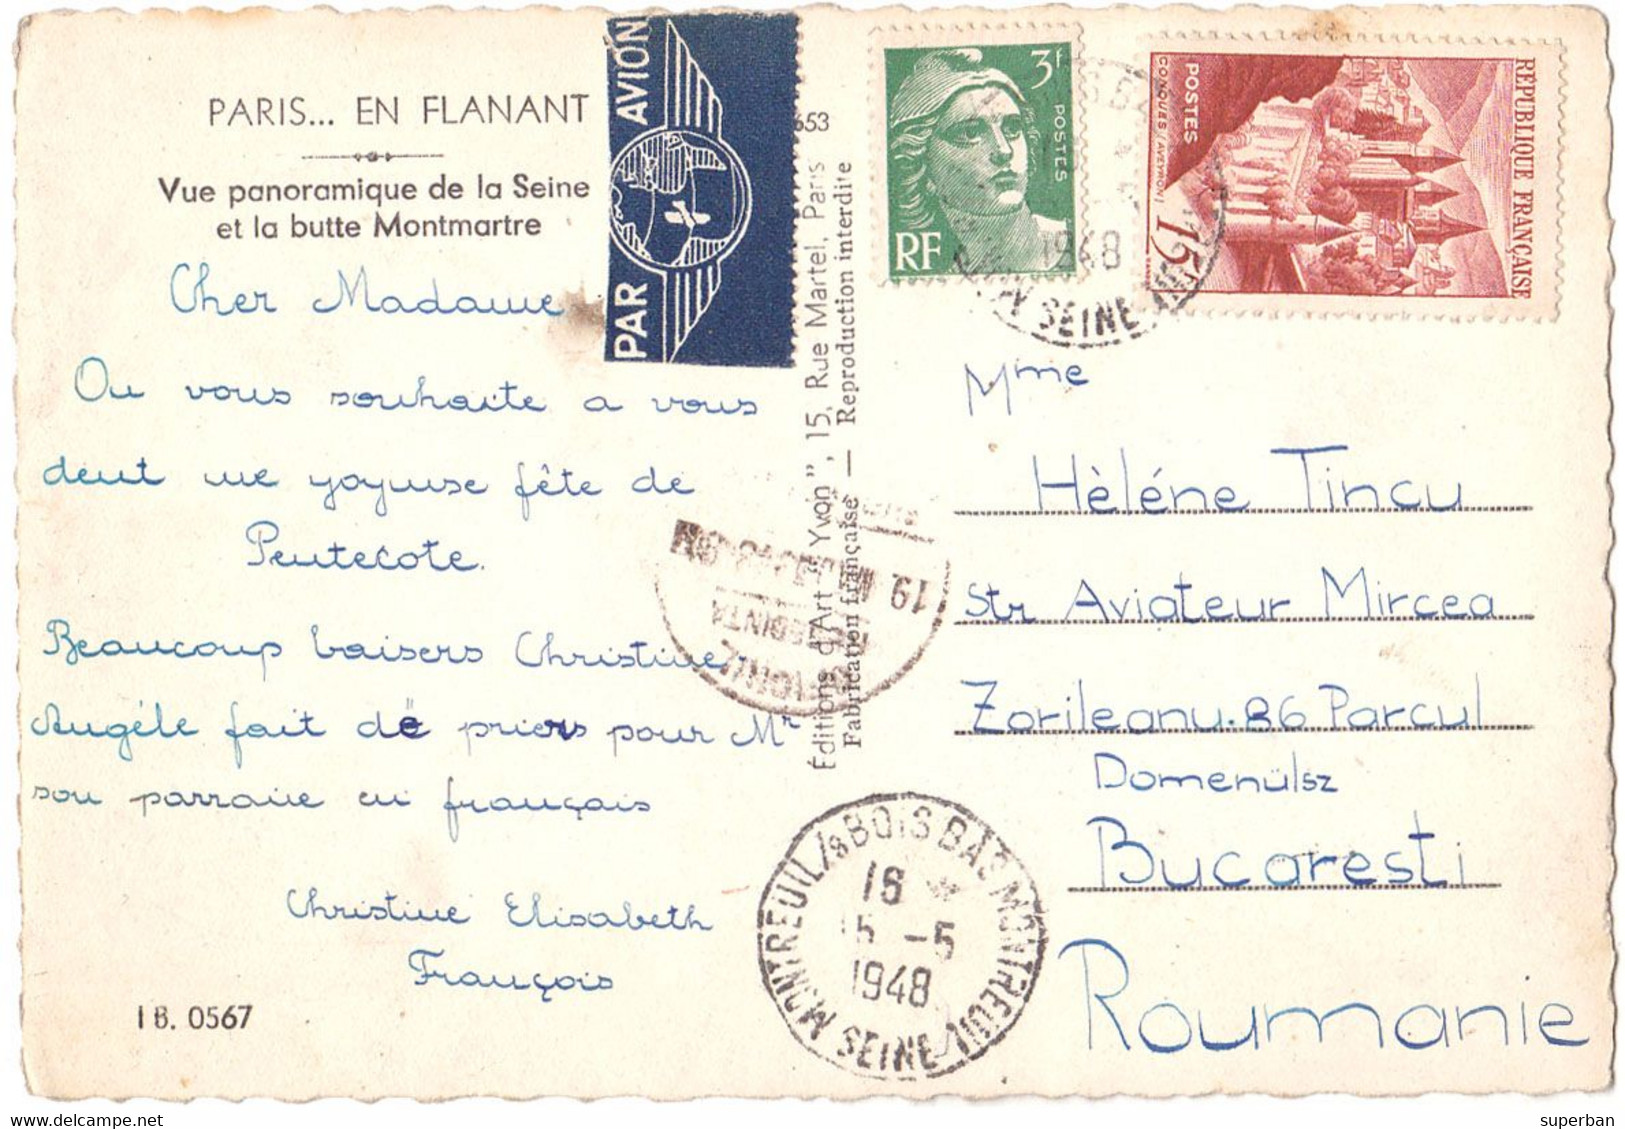 PARIS... EN FLANANT
Vue panoramique de la Seine
et la butte Montmartre
Cher Madame
On vous souhaite a vous
deut une yoyuse fête de
Pentecote.
Beaucoup baisers Christine
Angéle fait de priers pour Mr
son parraine en français
Christine Elisabeth
François
I B. 0567
PAR AVION
653
Éditions d'Art "Yvon", 15, Rue Martel, Paris
Fabrication française — Reproduction interdite
3f
POSTES
RF
REPUBLIQUE FRANÇAISE
POSTES
CONQUES (AVEYRON)
15f
1948
SEINE
19
MONTREUIL/s BOIS BAS MONTREUIL
16
15 -5
1948
SEINE
Mme
Hèléne Tincu
Str Aviateur Mircea
Zorileanu.86 Parcul
Domenülsz
Bucaresti
Roumanie
superban